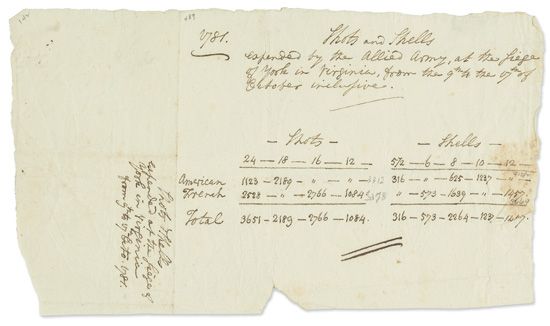 1781.
Shots and Shells
expended by the Allied Army, at the Siege
of York in Virginia, from the 9th to the 17th of
October inclusive.
— Shots — — Shells —
24 — 18 — 16 — 12 — 5½ — 6 — 8 — 10 — 12 —
American 1123 — 2189 — " — " — 3312 316 — " — 625 — 1237 — "
French 2528 — " — 2766 — 1084 " — 573 — 1639 — " — 1457
Total 3651 — 2189 — 2766 — 1084. 316 — 573 — 2264 — 1237 — 1457.
Shots & Shells
expended at the Siege of
York in Virginia
from 9th to 17 Octo. 1781.